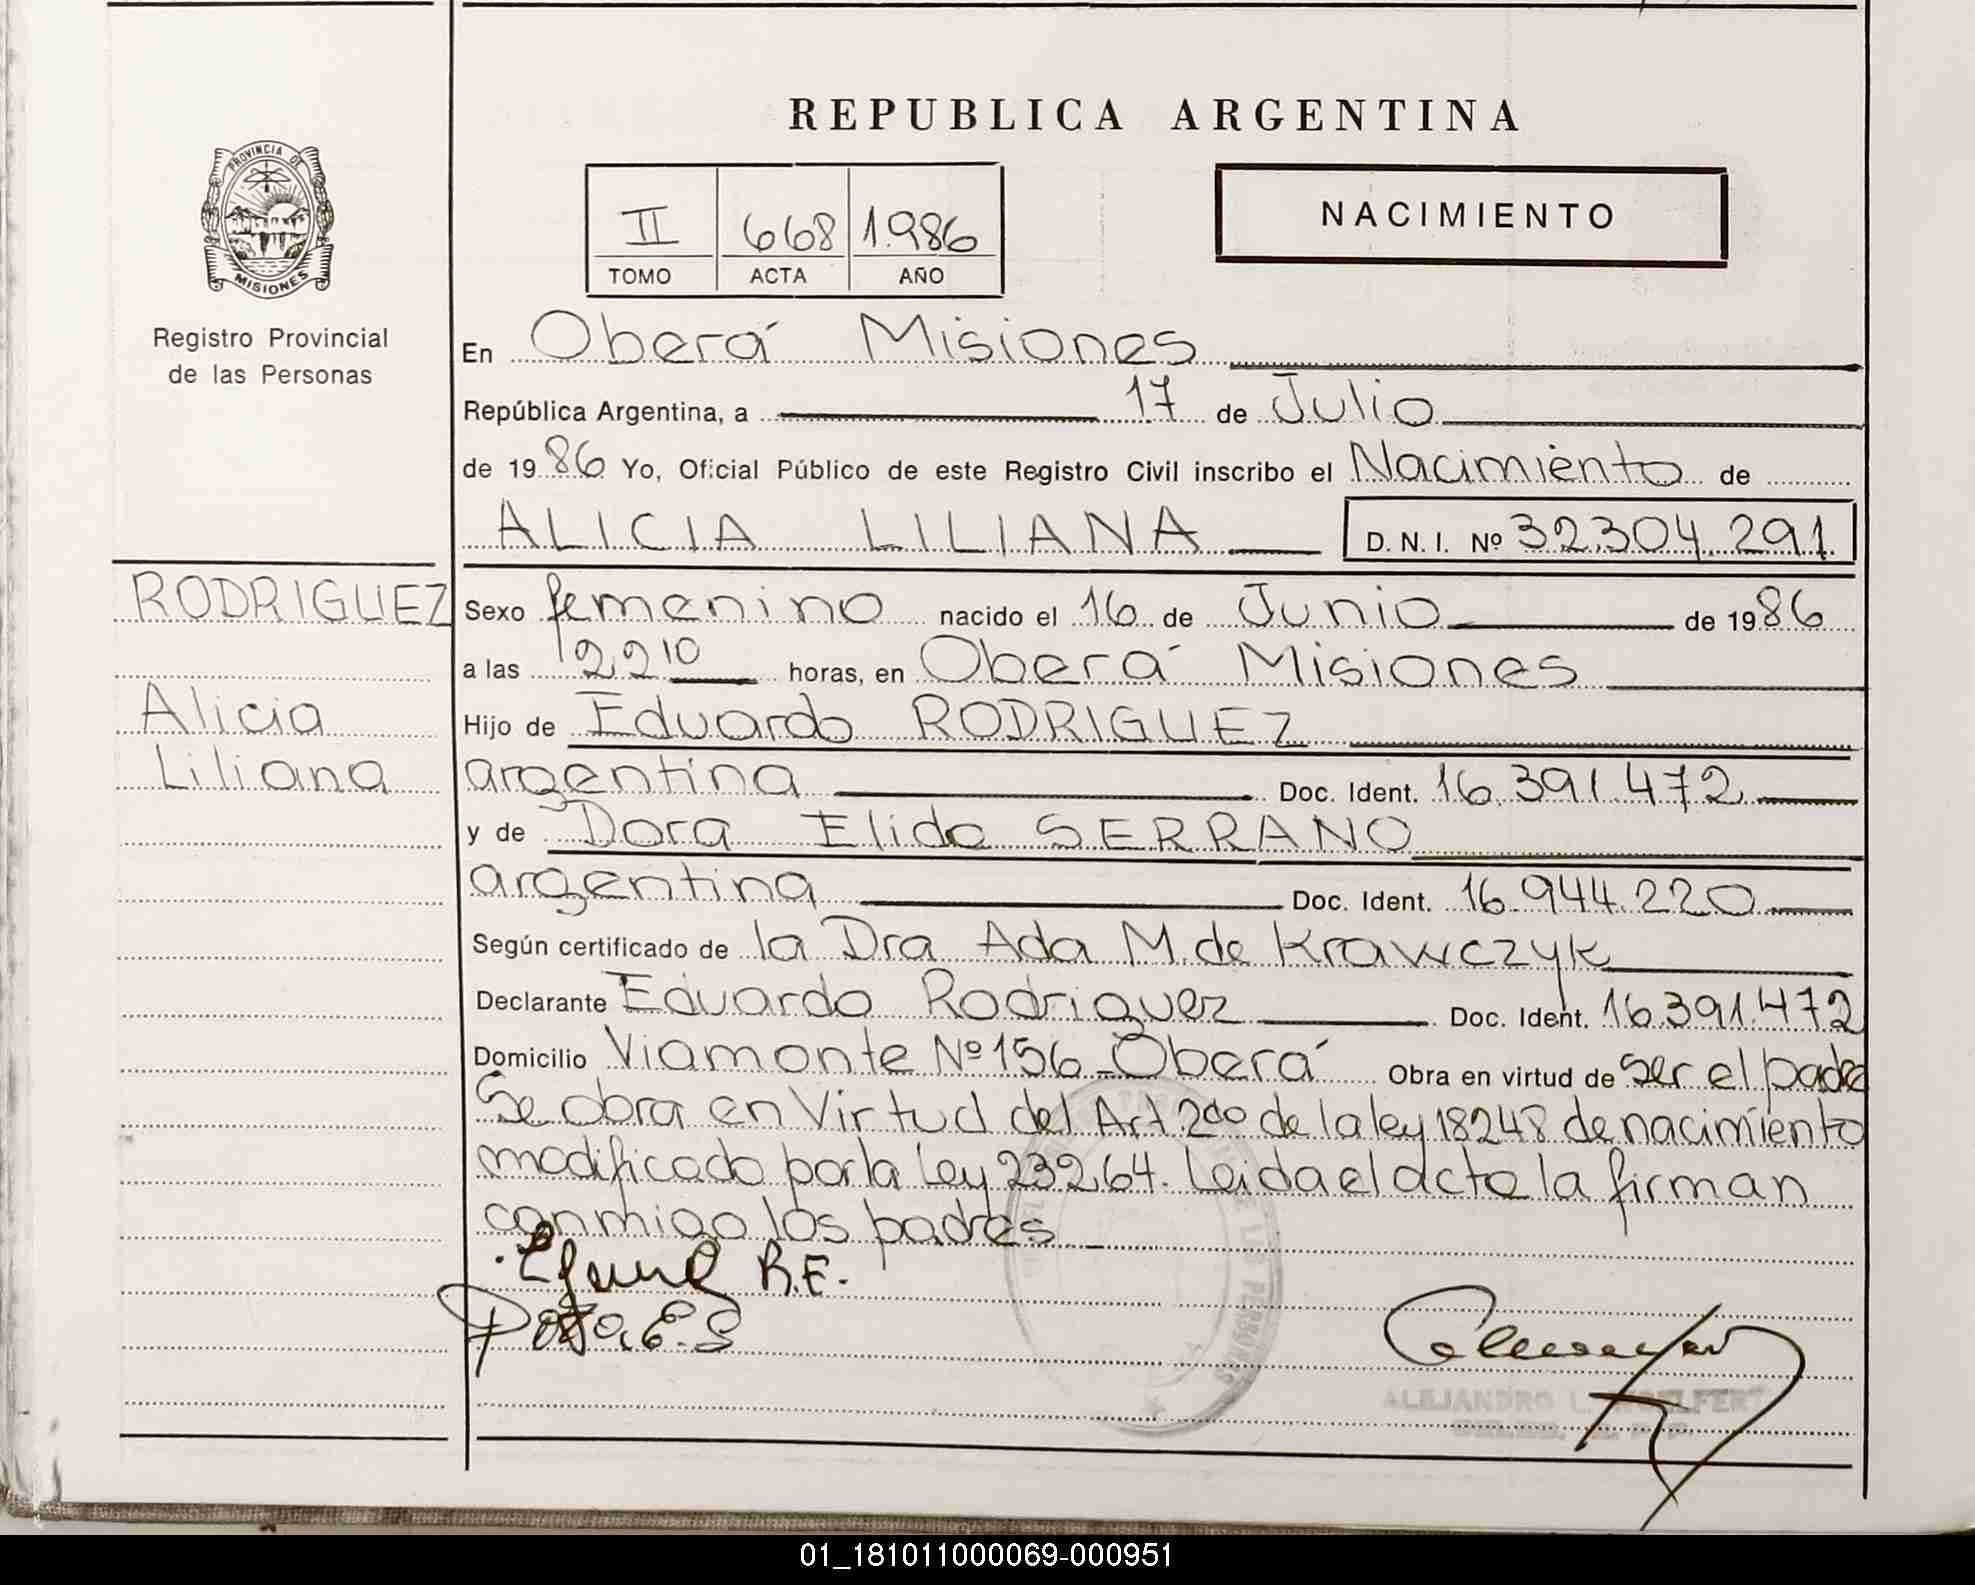 REPUBLICA ARGENTINA
PROVINCIA DE
MISIONES
Registro Provincial
de las Personas
II 668 1.986
TOMO ACTA AÑO
NACIMIENTO
En Oberá Misiones
República Argentina, a 17 de Julio
de 1986 Yo, Oficial Público de este Registro Civil inscribo el Nacimiento de
ALICIA LILIANA D. N. I. Nº 32.304.291.
RODRIGUEZ
Alicia
Liliana
Sexo femenino nacido el 16 de Junio de 1986
a las 22 10 horas, en Oberá Misiones
Hijo de Eduardo RODRIGUEZ
argentina Doc. Ident. 16.391.472
y de Dora Elida SERRANO
argentina Doc. Ident. 16.944.220
Según certificado de la Dra Ada M. de Krawczyk
Declarante Eduardo Rodriguez Doc. Ident. 16.391.472
Domicilio Viamonte Nº 156 - Oberá Obra en virtud de ser el padre
Se obra en Virtud del Art 2do de la ley 18248 de nacimiento
modificado por la Ley 23264. Leida el acta la firman
conmigo los padres
R.E.
Dora.E.S
ALEJANDRO L.
LAS PERSONAS
01_181011000069-000951